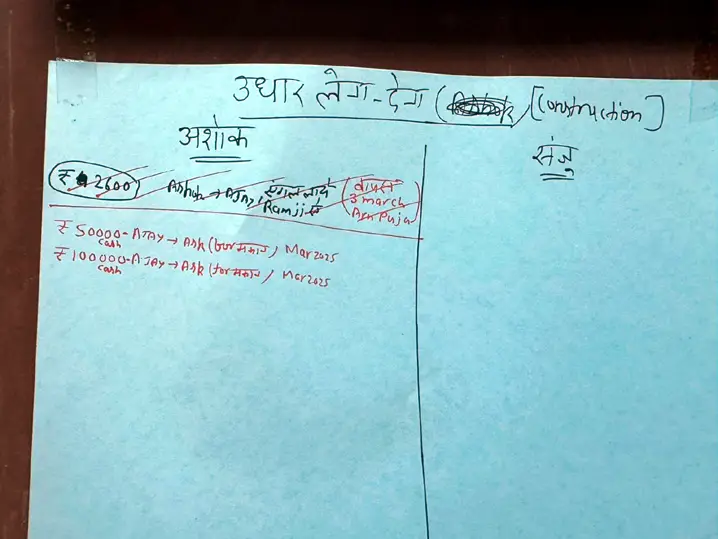 उधार लेन-देन ( [Construction]
अशोक
संजु
₹ 2600 Ashok → AJAY, एंगल लाये Ramji से (वापस 3 march Ash Puja)
₹ 50000-AJAY → Ask (for मकान) Mar 2025
cash
₹ 100000-AJAY → Ask (for मकान) Mar 2025
cash